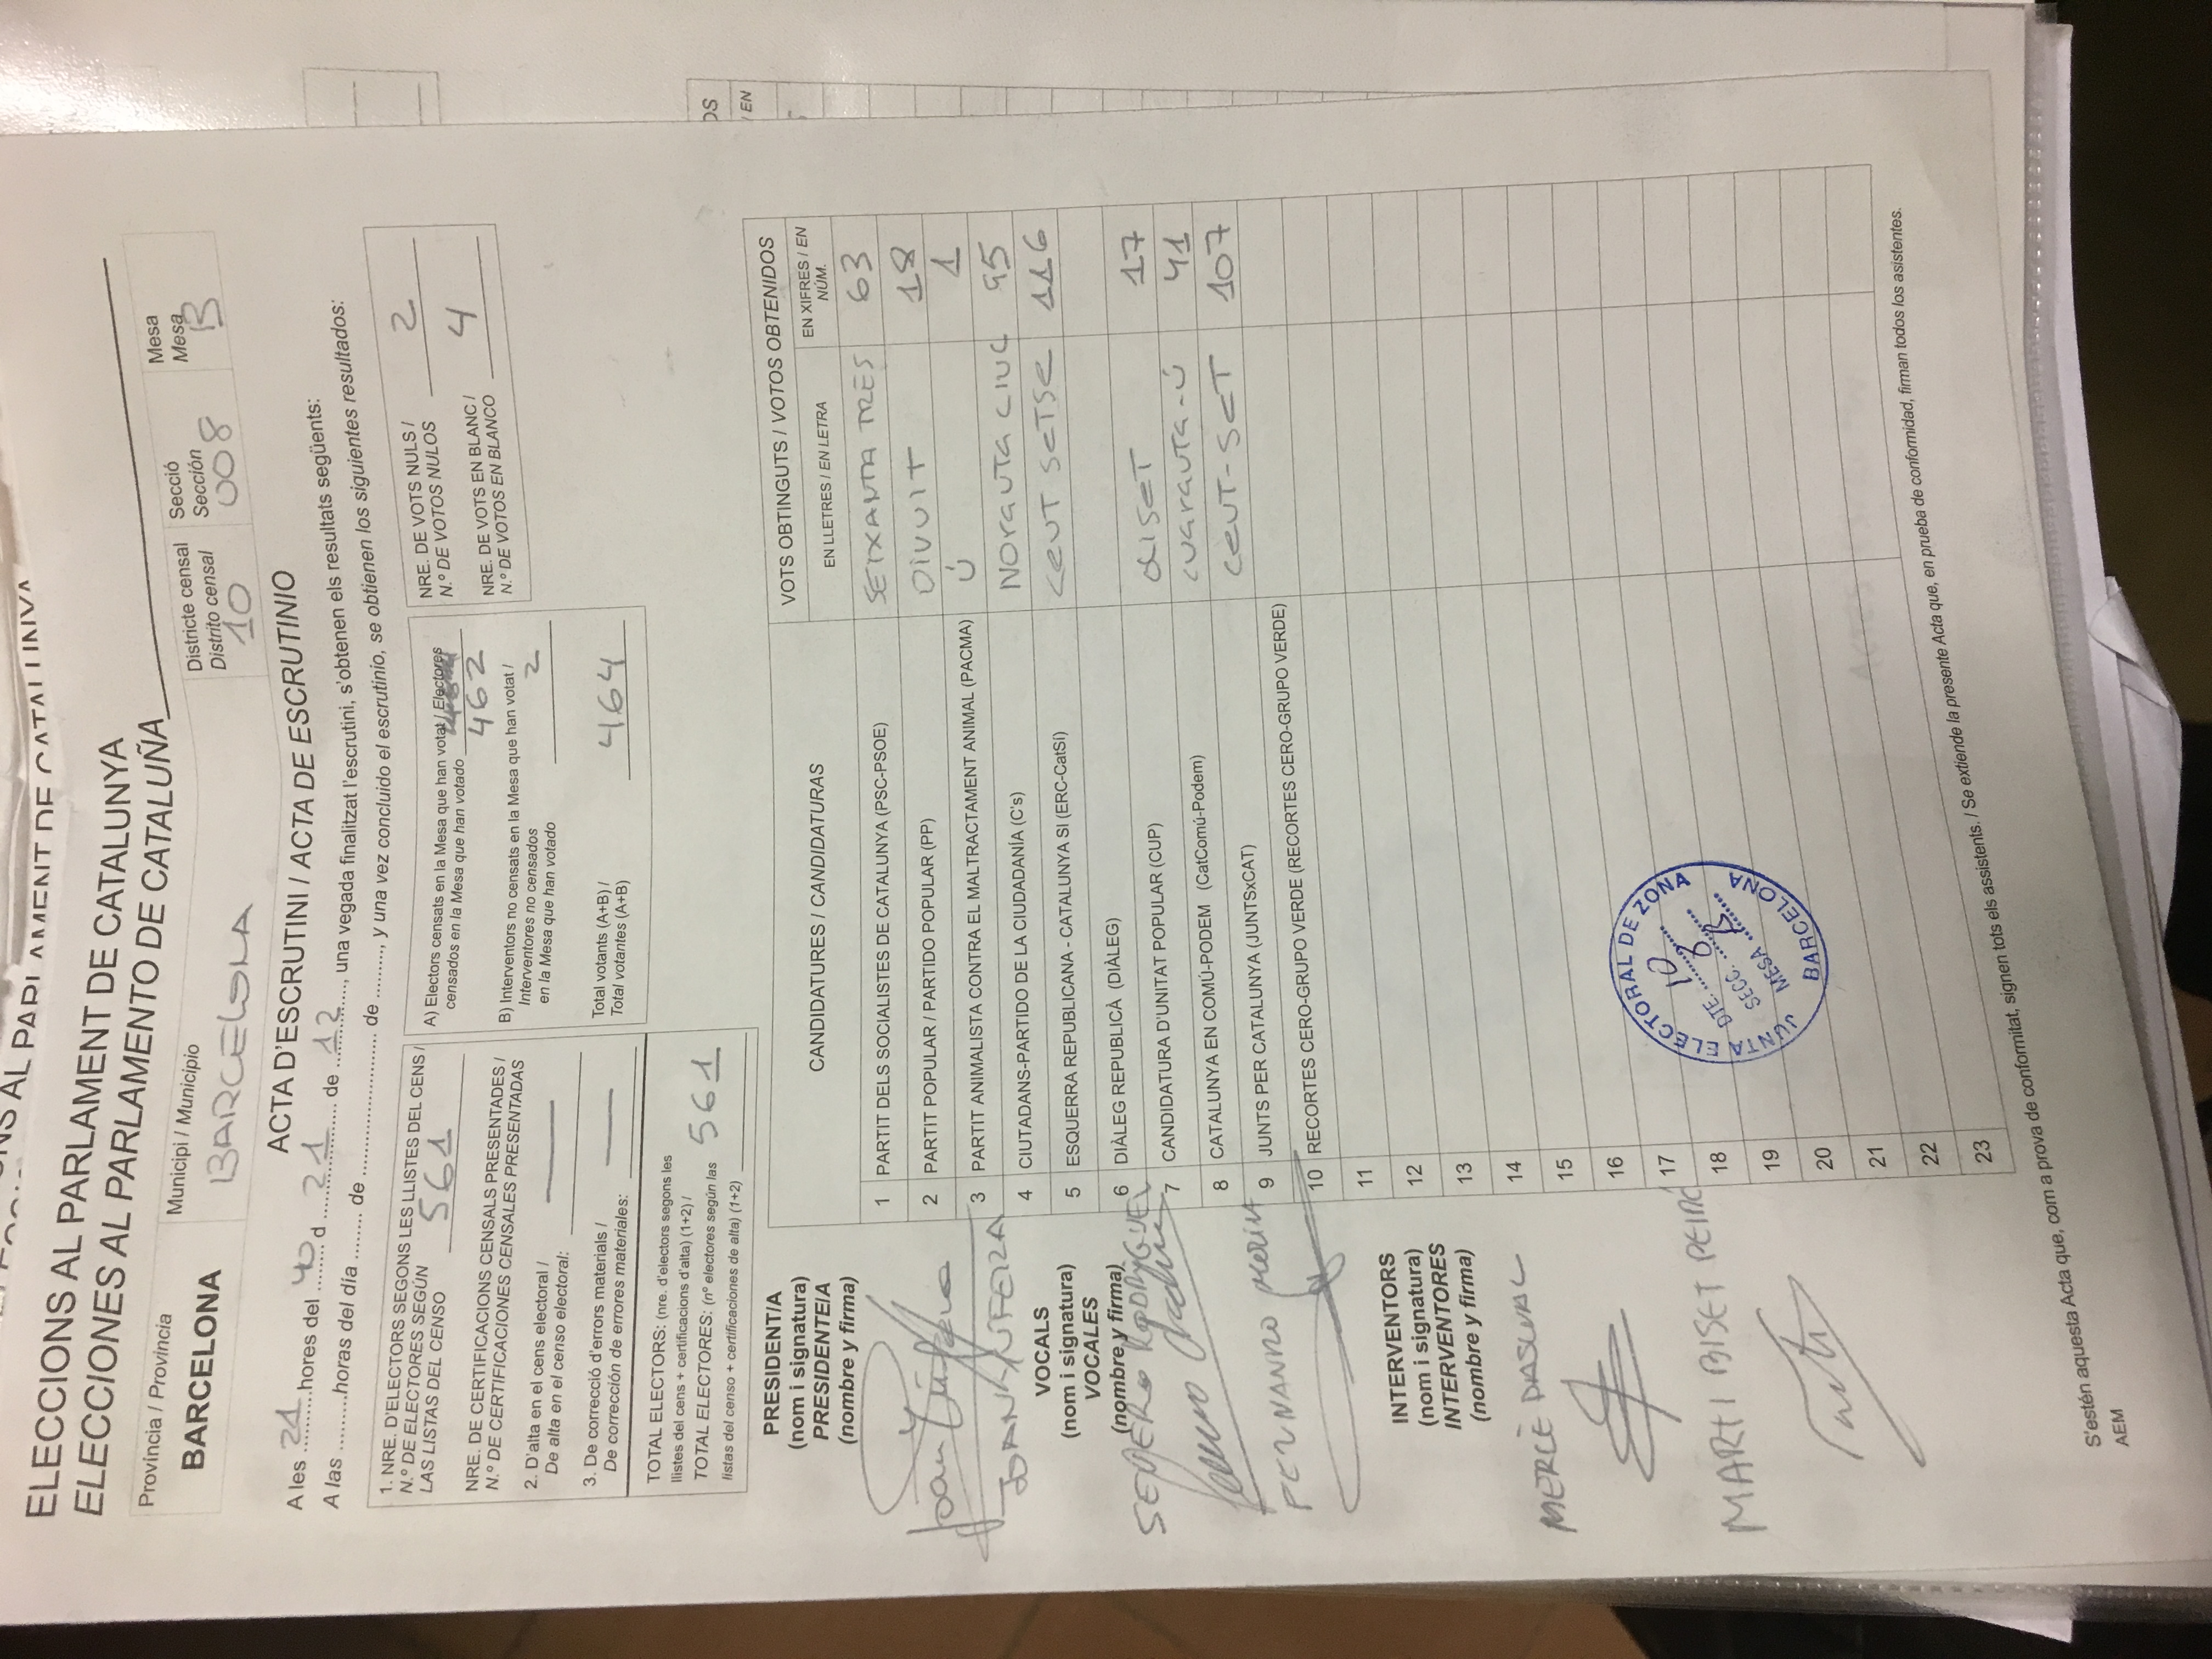 NS AL PARLAMENT DE CATALUNYA
ELECCIONS AL PARLAMENT DE CATALUNYA
ELECCIONES AL PARLAMENTO DE CATALUÑA
Província / Provincia
BARCELONA
Municipi / Municipio
BARCELONA
Districte censal
Distrito censal
10
Secció
Sección
008
Mesa
Mesa
B
ACTA D'ESCRUTINI / ACTA DE ESCRUTINIO
A les 21 hores del 40 d 21 de 12, una vegada finalitzat l'escrutini, s'obtenen els resultats següents:
A las .........horas del día ........ de ......................... de ........., y una vez concluido el escrutinio, se obtienen los siguientes resultados:
1. NRE. D'ELECTORS SEGONS LES LLISTES DEL CENS /
N.º DE ELECTORES SEGÚN
LAS LISTAS DEL CENSO 561
NRE. DE CERTIFICACIONS CENSALS PRESENTADES /
N.º DE CERTIFICACIONES CENSALES PRESENTADAS
2. D'alta en el cens electoral /
De alta en el censo electoral: —
3. De correcció d'errors materials /
De corrección de errores materiales: —
TOTAL ELECTORS: (nre. d'electors segons les
llistes del cens + certificacions d'alta) (1+2) /
TOTAL ELECTORES: (nº electores según las 561
listas del censo + certificaciones de alta) (1+2)
A) Electors censats en la Mesa que han votat / Electores
censados en la Mesa que han votado
462
B) Interventors no censats en la Mesa que han votat /
Interventores no censados
en la Mesa que han votado 2
Total votants (A+B) /
Total votantes (A+B) 464
NRE. DE VOTS NULS /
N.º DE VOTOS NULOS 2
NRE. DE VOTS EN BLANC /
N.º DE VOTOS EN BLANCO 4
PRESIDENT/A
(nom i signatura)
PRESIDENTE/A
(nombre y firma)
Joan
JOAN YÚFERA
VOCALS
(nom i signatura)
VOCALES
(nombre y firma)
SEVERO RODRIGUEZ
FERNANDO
INTERVENTORS
(nom i signatura)
INTERVENTORES
(nombre y firma)
MERCÈ PASCUAL
MARTI BISET PEIRÓ
CANDIDATURES / CANDIDATURAS
VOTS OBTINGUTS / VOTOS OBTENIDOS
EN LLETRES / EN LETRA
EN XIFRES / EN
NÚM.
1 PARTIT DELS SOCIALISTES DE CATALUNYA (PSC-PSOE) SEIXANTA TRES 63
2 PARTIT POPULAR / PARTIDO POPULAR (PP) DIVUIT 18
3 PARTIT ANIMALISTA CONTRA EL MALTRACTAMENT ANIMAL (PACMA) Ú 1
4 CIUTADANS-PARTIDO DE LA CIUDADANÍA (C's) NORANTA CINC 95
5 ESQUERRA REPUBLICANA - CATALUNYA SI (ERC-CatSí) CENT SETSE 116
6 DIÀLEG REPUBLICÀ (DIÀLEG)
7 CANDIDATURA D'UNITAT POPULAR (CUP) DISET 17
8 CATALUNYA EN COMÚ-PODEM (CatComú-Podem) CUARANTA-Ú 41
9 JUNTS PER CATALUNYA (JUNTSxCAT) CENT-SET 107
10 RECORTES CERO-GRUPO VERDE (RECORTES CERO-GRUPO VERDE)
11
12
13
14
15
16
17
18
19
20
21
22
23
JUNTA ELECTORAL DE ZONA
DTE. 10
SECC. 8
MESA B
BARCELONA
S'estén aquesta Acta que, com a prova de conformitat, signen tots els assistents. / Se extiende la presente Acta que, en prueba de conformidad, firman todos los asistentes.
AEM
OS
/ EN